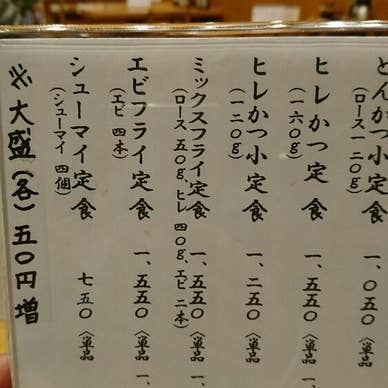 とんかつ定食 一、〇五〇 〈単品
(ロース一二〇g)
ヒレかつ定食 一、五五〇 〈単品 一
(一六〇g)
ヒレかつ小定食 一、二五〇 〈単品
(一二〇g)
ミックスフライ定食 一、五五〇 〈単品 一
(ロース 五〇g、ヒレ 四〇g、エビ 二本)
エビフライ定食 一、五五〇 〈単品 一、
(エビ 四本)
シューマイ定食 七五〇 〈単品
(シューマイ 四個)
※大盛(各)五〇円増